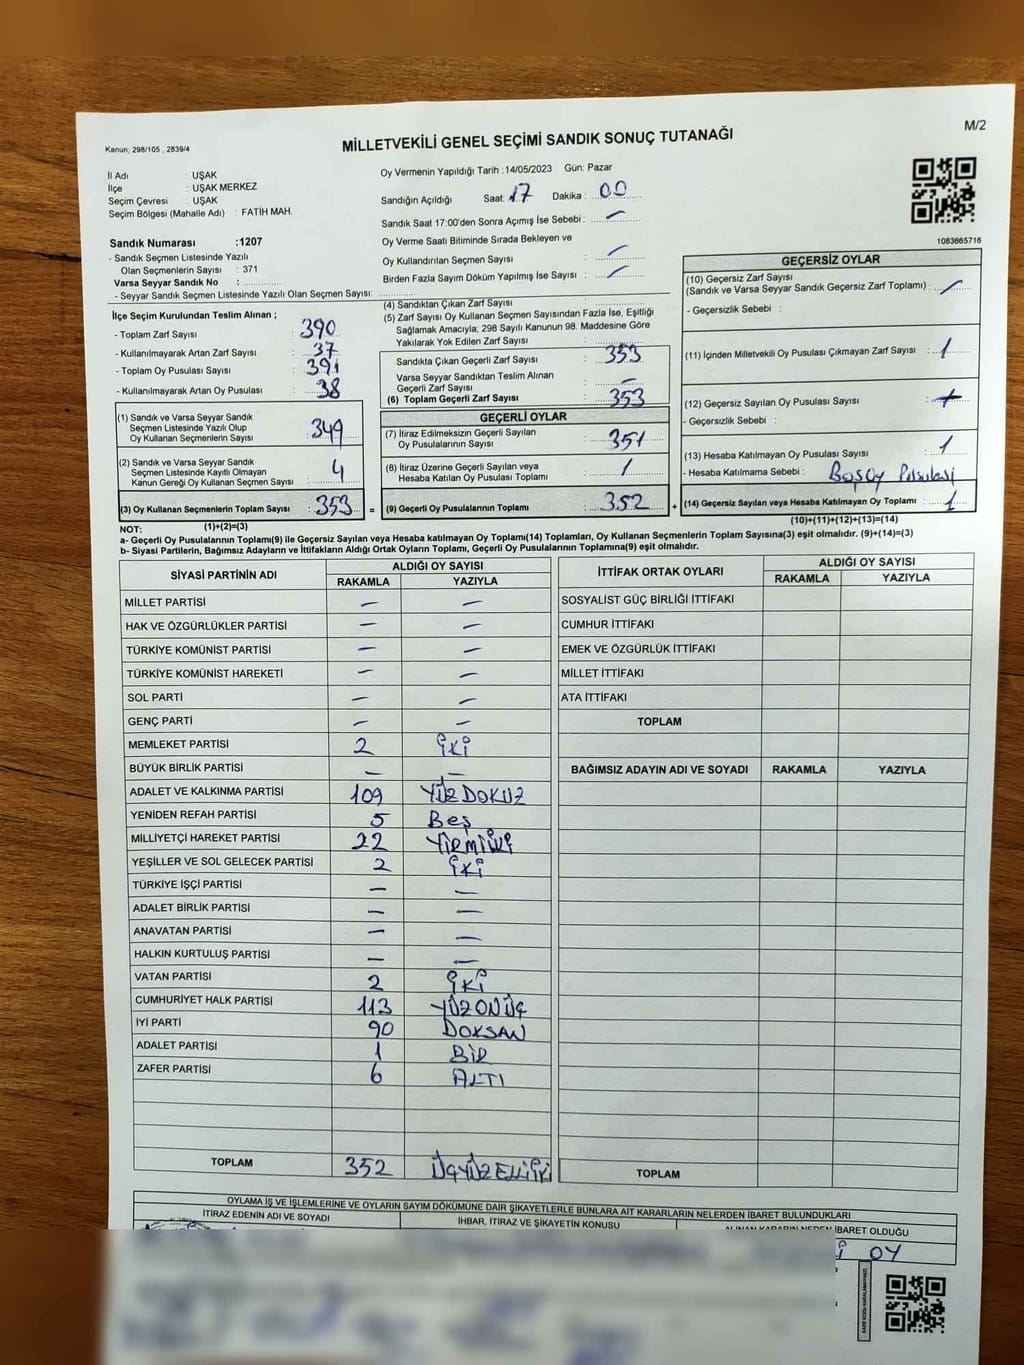 Kanun; 298/105 , 2839/4
MİLLETVEKİLİ GENEL SEÇİMİ SANDIK SONUÇ TUTANAĞI
M/2
İl Adı : UŞAK
İlçe : UŞAK MERKEZ
Seçim Çevresi : UŞAK
Seçim Bölgesi (Mahalle Adı) : FATİH MAH.
Sandık Numarası :1207
- Sandık Seçmen Listesinde Yazılı
Olan Seçmenlerin Sayısı : 371
Varsa Seyyar Sandık No :
- Seyyar Sandık Seçmen Listesinde Yazılı Olan Seçmen Sayısı:
Oy Vermenin Yapıldığı Tarih :14/05/2023 Gün: Pazar
Sandığın Açıldığı Saat: 17 Dakika : 00
Sandık Saat 17:00'den Sonra Açımış İse Sebebi : —
Oy Verme Saati Bitiminde Sırada Bekleyen ve
Oy Kullandırılan Seçmen Sayısı : —
Birden Fazla Sayım Döküm Yapılmış İse Sayısı : —
1083665716
İlçe Seçim Kurulundan Teslim Alınan ;
- Toplam Zarf Sayısı : 390
- Kullanılmayarak Artan Zarf Sayısı : 37
- Toplam Oy Pusulası Sayısı : 391
- Kullanılmayarak Artan Oy Pusulası : 38
(1) Sandık ve Varsa Seyyar Sandık
Seçmen Listesinde Yazılı Olup
Oy Kullanan Seçmenlerin Sayısı : 349
(2) Sandık ve Varsa Seyyar Sandık
Seçmen Listesinde Kayıtlı Olmayan
Kanun Gereği Oy Kullanan Seçmen Sayısı : 4
(3) Oy Kullanan Seçmenlerin Toplam Sayısı : 353 =
(1)+(2)=(3)
(4) Sandıktan Çıkan Zarf Sayısı :
(5) Zarf Sayısı Oy Kullanan Seçmen Sayısından Fazla İse, Eşitliği
Sağlamak Amacıyla; 298 Sayılı Kanunun 98. Maddesine Göre
Yakılarak Yok Edilen Zarf Sayısı :
Sandıkta Çıkan Geçerli Zarf Sayısı : 353
Varsa Seyyar Sandıktan Teslim Alınan
Geçerli Zarf Sayısı : —
(6) Toplam Geçerli Zarf Sayısı : 353
GEÇERLİ OYLAR
(7) İtiraz Edilmeksizin Geçerli Sayılan
Oy Pusulalarının Sayısı : 351
(8) İtiraz Üzerine Geçerli Sayılan veya
Hesaba Katılan Oy Pusulası Toplamı : 1
(9) Geçerli Oy Pusulalarının Toplamı : 352 +
GEÇERSİZ OYLAR
(10) Geçersiz Zarf Sayısı
(Sandık ve Varsa Seyyar Sandık Geçersiz Zarf Toplamı) : —
- Geçersizlik Sebebi :
(11) İçinden Milletvekili Oy Pusulası Çıkmayan Zarf Sayısı : 1
(12) Geçersiz Sayılan Oy Pusulası Sayısı :
- Geçersizlik Sebebi :
(13) Hesaba Katılmayan Oy Pusulası Sayısı : 1
- Hesaba Katılmama Sebebi : Boş Oy Pusulası
(14) Geçersiz Sayılan veya Hesaba Katılmayan Oy Toplamı : 1
(10)+(11)+(12)+(13)=(14)
NOT:
a- Geçerli Oy Pusulalarının Toplamı(9) ile Geçersiz Sayılan veya Hesaba katılmayan Oy Toplamı(14) Toplamları, Oy Kullanan Seçmenlerin Toplam Sayısına(3) eşit olmalıdır. (9)+(14)=(3)
b- Siyasi Partilerin, Bağımsız Adayların ve İttifakların Aldığı Ortak Oyların Toplamı, Geçerli Oy Pusulalarının Toplamına(9) eşit olmalıdır.
SİYASİ PARTİNİN ADI ALDIĞI OY SAYISI
RAKAMLA YAZIYLA
MİLLET PARTİSİ — —
HAK VE ÖZGÜRLÜKLER PARTİSİ — —
TÜRKİYE KOMÜNİST PARTİSİ — —
TÜRKİYE KOMÜNİST HAREKETİ — —
SOL PARTİ — —
GENÇ PARTİ — —
MEMLEKET PARTİSİ 2 İKİ
BÜYÜK BİRLİK PARTİSİ — —
ADALET VE KALKINMA PARTİSİ 109 YÜZ DOKUZ
YENİDEN REFAH PARTİSİ 5 BEŞ
MİLLİYETÇİ HAREKET PARTİSİ 22 YİRMİİKİ
YEŞİLLER VE SOL GELECEK PARTİSİ 2 İKİ
TÜRKİYE İŞÇİ PARTİSİ — —
ADALET BİRLİK PARTİSİ — —
ANAVATAN PARTİSİ — —
HALKIN KURTULUŞ PARTİSİ — —
VATAN PARTİSİ 2 İKİ
CUMHURİYET HALK PARTİSİ 113 YÜZ ONÜÇ
İYİ PARTİ 90 DOKSAN
ADALET PARTİSİ 1 BİR
ZAFER PARTİSİ 6 ALTI
TOPLAM 352 ÜÇYÜZ ELLİİKİ
İTTİFAK ORTAK OYLARI ALDIĞI OY SAYISI
RAKAMLA YAZIYLA
SOSYALIST GÜÇ BİRLİĞİ İTTİFAKI
CUMHUR İTTİFAKI
EMEK VE ÖZGÜRLÜK İTTİFAKI
MİLLET İTTİFAKI
ATA İTTİFAKI
TOPLAM
BAĞIMSIZ ADAYIN ADI VE SOYADI RAKAMLA YAZIYLA
TOPLAM
OYLAMA İŞ VE İŞLEMLERİNE VE OYLARIN SAYIM DÖKÜMÜNE DAİR ŞİKAYETLERLE BUNLARA AİT KARARLARIN NELERDEN İBARET BULUNDUKLARI
İTİRAZ EDENİN ADI VE SOYADI İHBAR, İTİRAZ VE ŞİKAYETİN KONUSU ALINAN KARARIN NEDEN İBARET OLDUĞU
OY